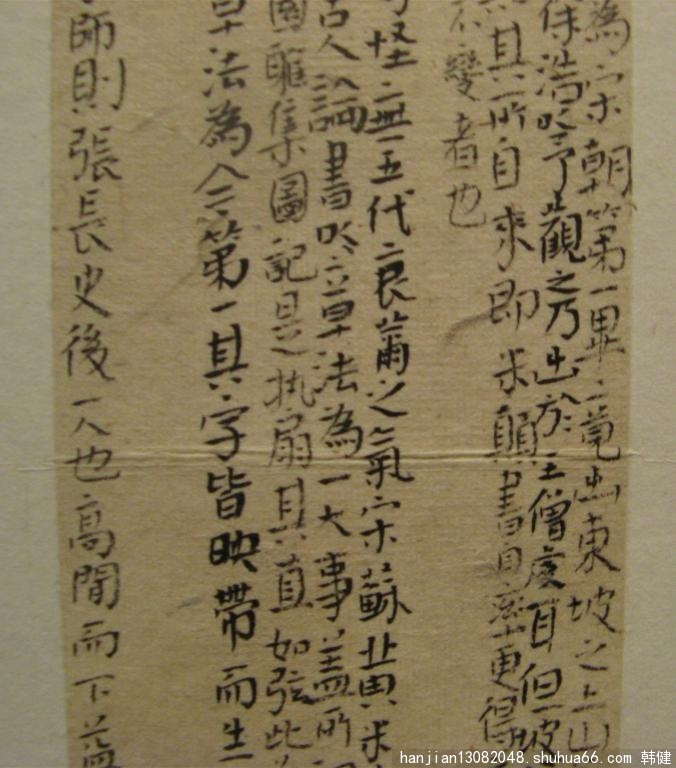 為宋朝第一畢竟出東坡之上山
保浩嘆予觀之乃出於王僧虔耳但坡
其所自來即米顛書自率更得
不變者也
怪無五代衰之氣宋蘇黃米
古人論書以章法為一大事蓋所
集圖記是執扇其直如弦此
章法為今第一其字皆映帶而生
師則張長史後一人也高閒而下益
hanjian13082048.shuhua66.com 韩健